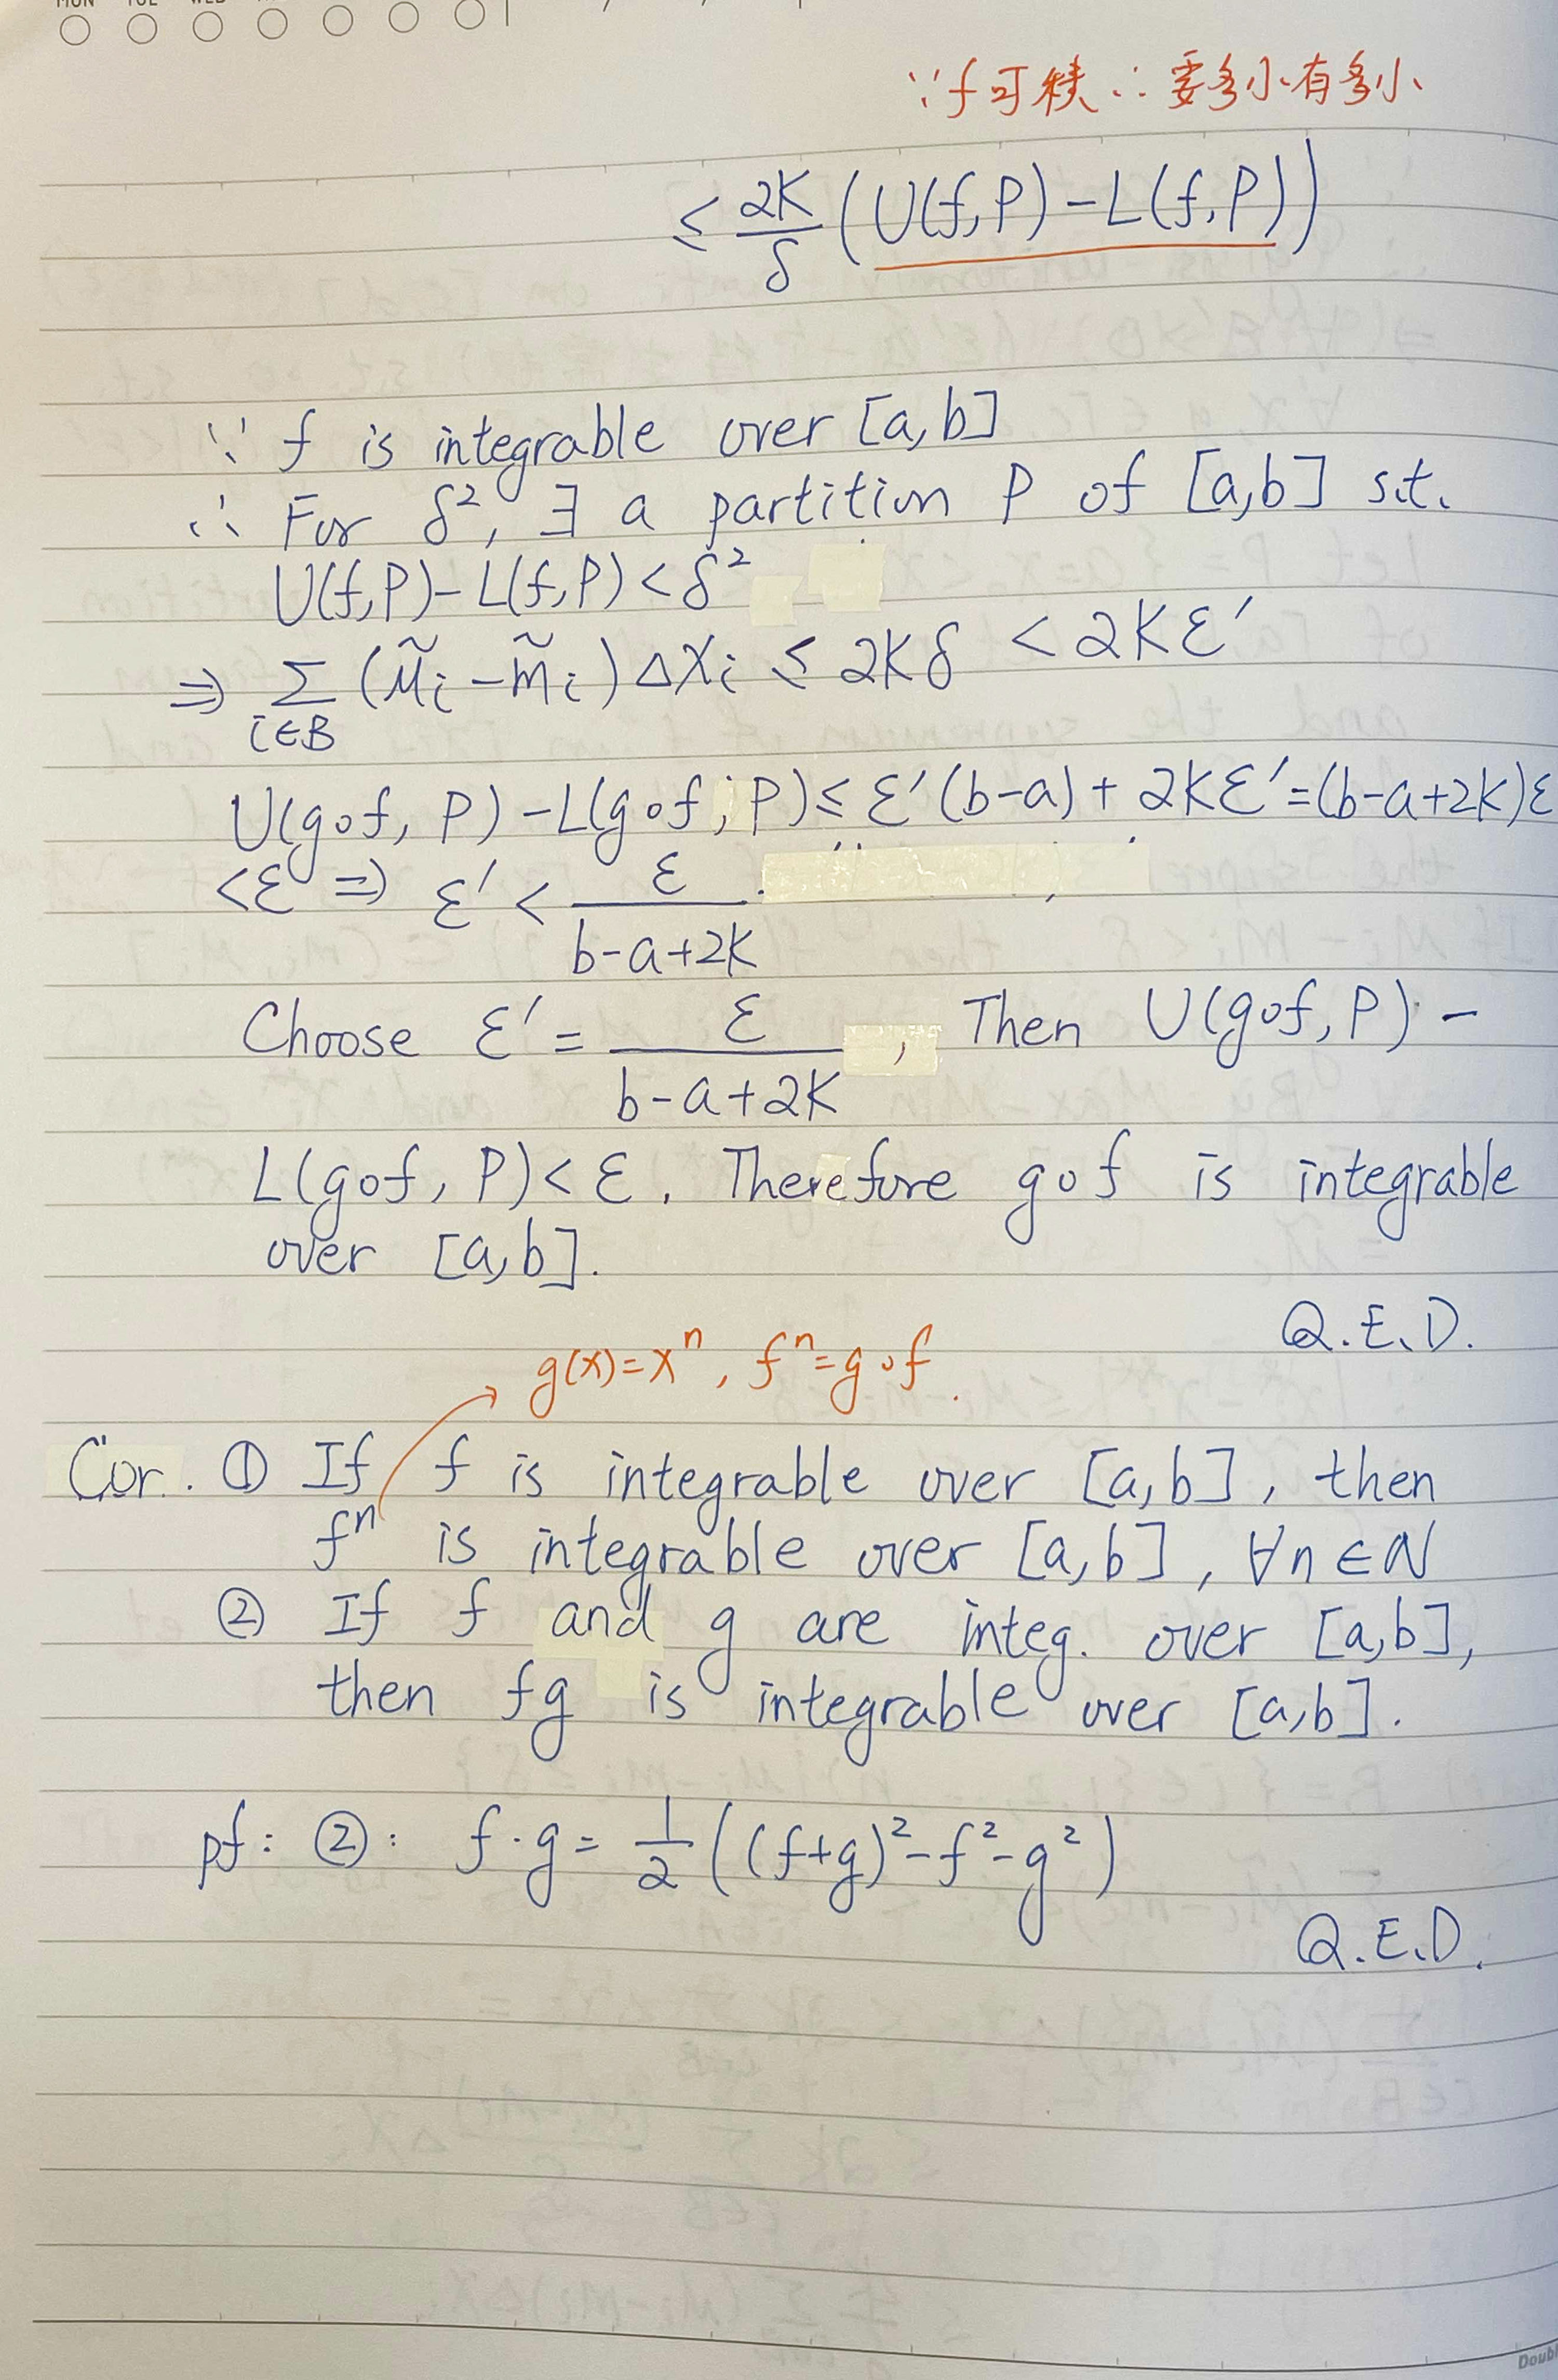 MON TUE WED
∵f可積∴要多小有多小
≤ 2K/δ (U(f,P)-L(f,P))
∵ f is integrable over [a,b]
∴ For δ², ∃ a partition P of [a,b] s.t.
U(f,P)-L(f,P)<δ²
⇒ Σ_{i∈B} (M̃i-m̃i)ΔXi ≤ 2Kδ < 2Kε′
U(g∘f, P)-L(g∘f, P)≤ε′(b-a)+2Kε′=(b-a+2K)ε
<ε ⇒ ε′ < ε/(b-a+2K).
Choose ε′ = ε/(b-a+2K), Then U(g∘f,P)-
L(g∘f, P)<ε. Therefore g∘f is integrable
over [a,b].
Q.E.D.
g(x)=xⁿ, fⁿ=g∘f.
Cor. ① If f is integrable over [a,b], then
fⁿ is integrable over [a,b], ∀n∈N
② If f and g are integ. over [a,b],
then fg is integrable over [a,b].
pf: ②: f·g= 1/2 ((f+g)²-f²-g²)
Q.E.D.